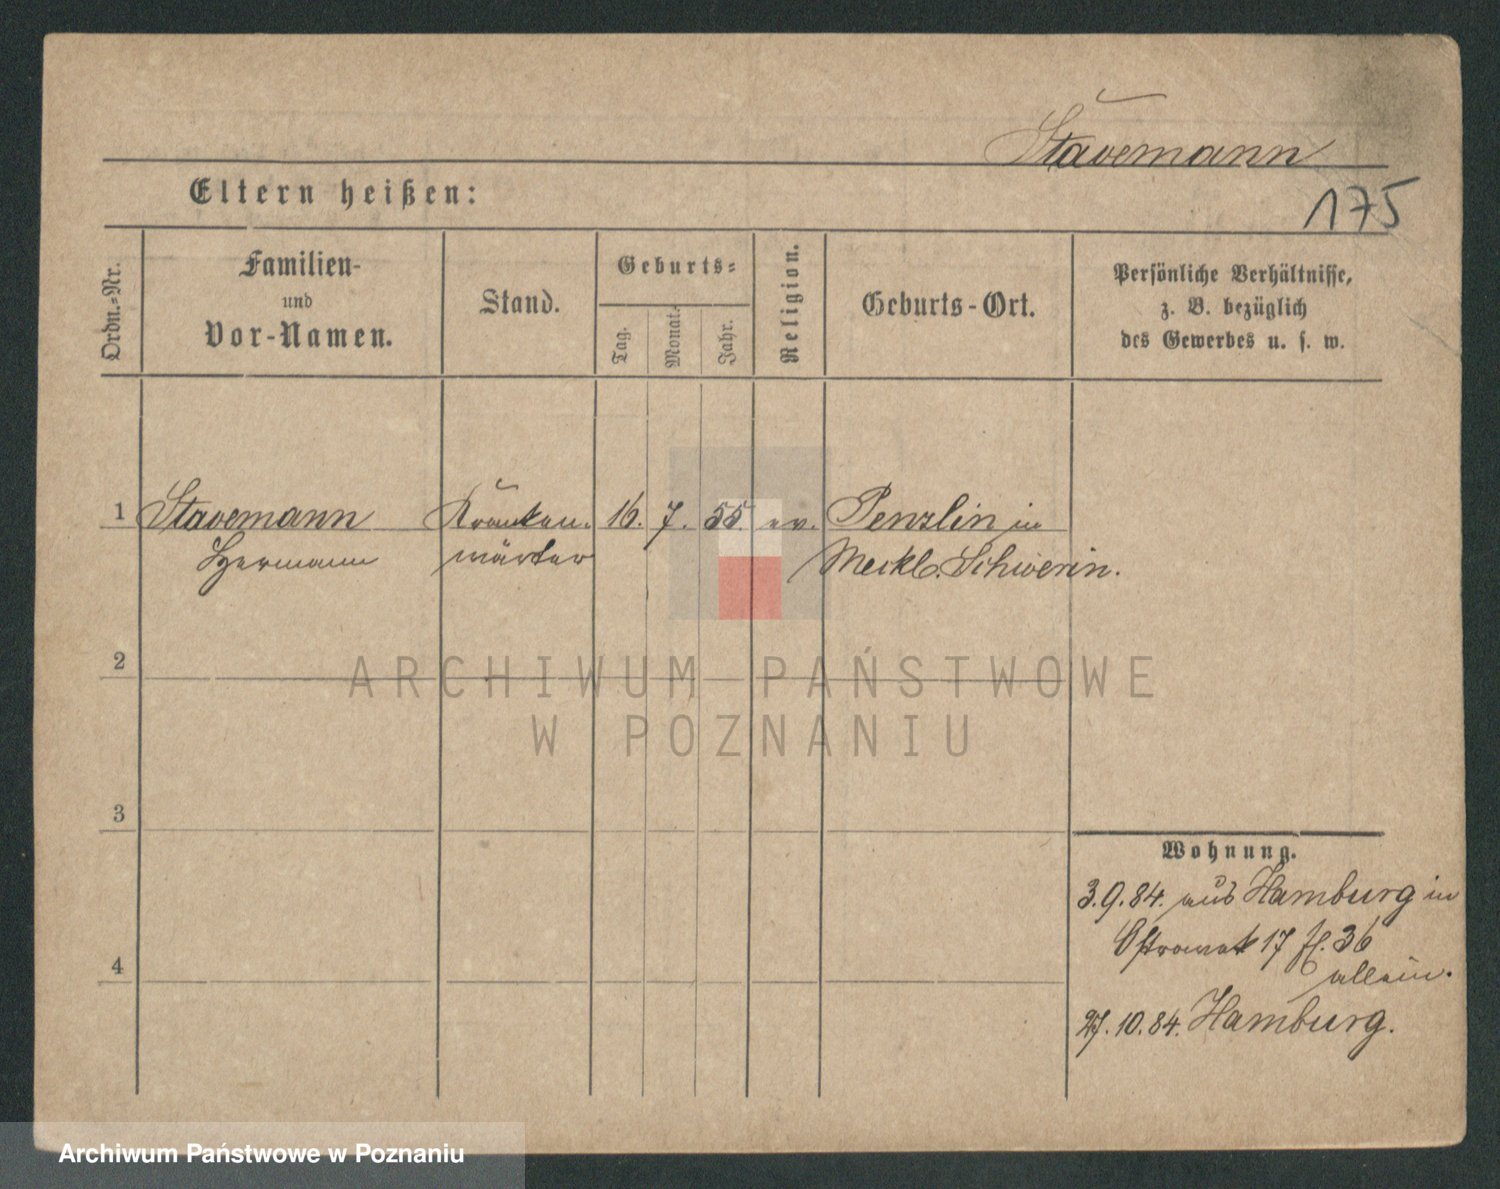 Stavemann
175
Eltern heißen:
Ordn.-Nr.
Familien-
und
Vor-Namen.
Stand.
Geburts-
Tag.
Monat.
Jahr.
Religion.
Geburts-Ort.
Persönliche Verhältnisse,
z. B. bezüglich
des Gewerbes u. s. w.
1 Stavemann Kranken- 16. 7. 55. ev. Penzlin in
Hermann wärter Meckl. Schwerin.
2
ARCHIWUM PAŃSTWOWE
W POZNANIU
3
Wohnung.
3.9.84. aus Hamburg in
Ostrowek 17 fl. 36
allein.
4
27.10.84. Hamburg.
Archiwum Państwowe w Poznaniu